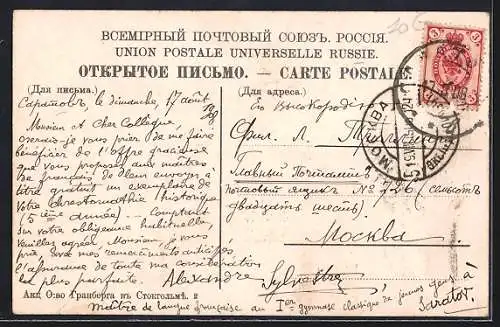 ВСЕМІРНЫЙ ПОЧТОВЫЙ СОЮЗЪ. РОССІЯ.
UNION POSTALE UNIVERSELLE RUSSIE.
ОТКРЫТОЕ ПИСЬМО. — CARTE POSTALE
(Для письма.)
(Для адреса.)
Саратовъ, le dimanche, 17 août
Monsieur et Cher Collègue,
oserais-je vous prier de me faire
bénéficier de l'offre gracieuse
que vous proposez aux maîtres
de français de leur envoyer à
titre gratuit un exemplaire de
votre chrestomathie historique
(5ième année) — Comptant
sur votre obligeance habituelle,
veuillez agréer, Monsieur, je vous
prie, avec mes remerciements anticipés
l'assurance de toute ma considération
la plus parfaite. Alexandre
Sylvestre
maître de langue française au Ier gymnase classique de jeunes gens à
Saratov.
Его Высокородію
Фил. Л.
Главный Почтамтъ
почтовый ящикъ № 726 (семьсотъ
двадцать шесть)
Москва
Акц. О-во Гранбергъ въ Стокгольмѣ.
МОСКВА